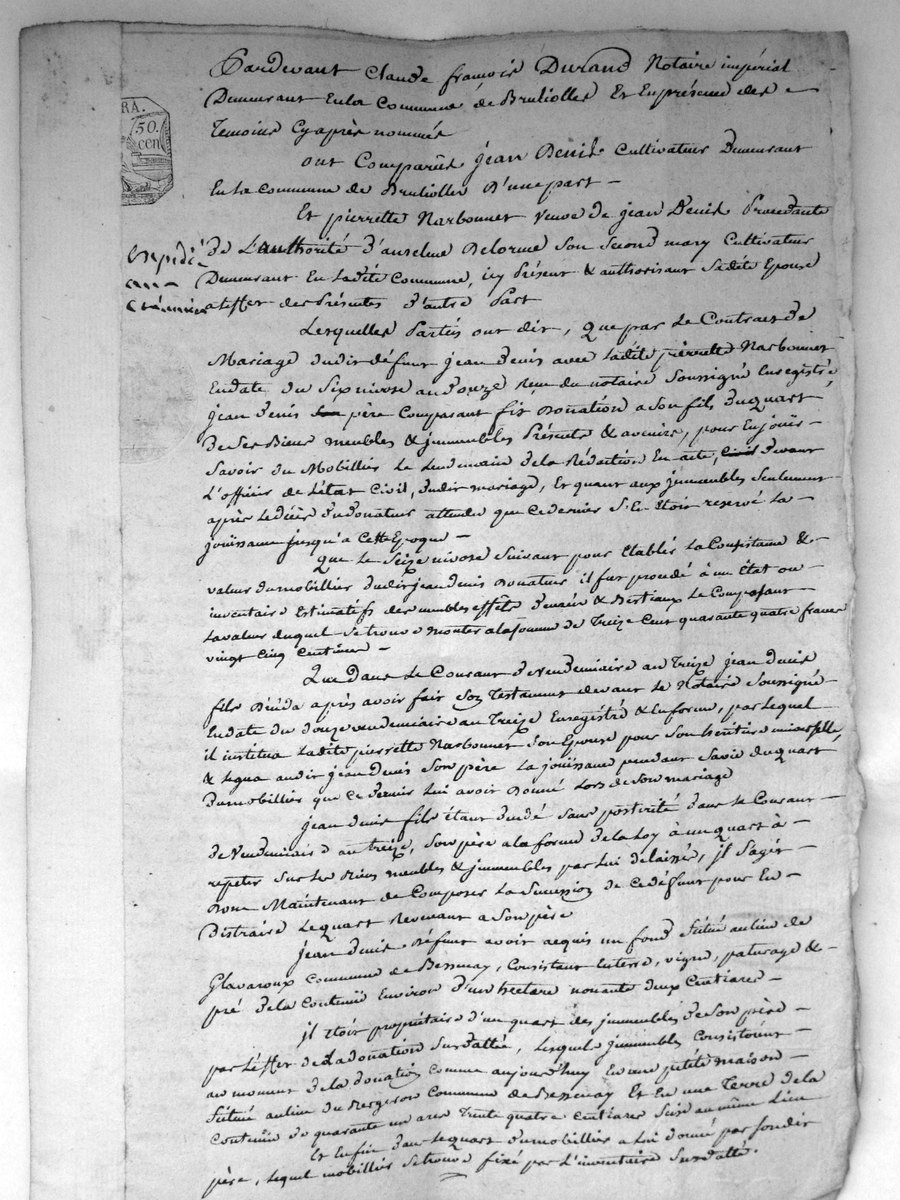 RA.
50.
cen
Pardevant Claude françois Durand Notaire impérial
Demeurant En la Commune de Brulliolles Et En présence des
Temoins Cy après nommés
ont Comparus jean Denis Cultivateur Demeurant
En la commune de Brulliolles D'une part —
Et pierrette Narbonnet veuve de jean Denis Procedante
Expedié
de L'authorité d'anselme Delorme Son Second mary Cultivateur
Demeurant En Ladite Commune, icy Présent & authorisant Ladite Epouse
a l'effet des Présentes D'autre Part
Lesquelles Parties ont dit, que par Le Contract de
Mariage dudit défunt jean Denis avec Ladite pierrette Narbonnet
En date du Six nivose an douze reçu du notaire Soussigné Enregistré,
jean Denis père Comparant fit Donation a Son fils Du quart
De Ses Biens meubles & jmmeubles Présents & avenirs, pour En jouïr
Savoir du Mobillier Le Lendemain de la Rédaction En acte, Devant
L'officier de L'état Civil, dudit mariage, Et quant aux jmmeubles Seulement
après Le décès du donateur attendu que ce dernier S'En Etoit reservé La
jouissance jusqu'a Cette Epoque —
Que Le Seize nivose Suivant pour Etablir La Consistance &
valeur du mobillier dudit jean Denis Donateur il fut procédé à un Etat ou
inventaire Estimatif des meubles effets & Bestiaux Le Composant
La valeur duquel Se trouve monter a la Somme de Treize Cent quarante quatre francs
vingt Cinq Centimes —
Que Dans Le Courant de Vendemiaire an Treize jean Denis
fils Décéda après avoir fait Son Testament devant Le Notaire Soussigné
En date du douze vendemiaire an Treize Enregistré & En forme, par Lequel
il institua Ladite pierrette Narbonnet Son Epouse pour Son héritière universelle,
& Legua audit jean Denis Son père La jouissance pendant Sa vie du quart
Du mobillier que Ce dernier Lui avoit Donné Lors de Son mariage
jean Denis fils étant décédé Sans postérité dans Le Courant
de Vendemiaire an treize, Son père a la forme de la Loy à un quart à
repeter Sur Les Biens meubles & jmmeubles par Lui délaissés, jl S'agit
Donc Maintenant de Composer La Succession de Ce défunt pour En
Distraire Le quart Revenant a Son père
jean Denis Défunt avoit acquis un fond Situé au lieu de
Glavaroux Commune de Bessenay, Consistant En terre, vigne, paturage &
pré de la Contenüe Environ D'un hectare nonante deux Centiares —
jl étoit propriétaire d'un quart des jmmeubles de Son père
par L'effet de La donation Surdattée, Lesquels jmmeubles Consistoient
au moment de la donation comme aujourd'huy En une petite maison
Située au lieu du Bergeron Commune de Bessenay Et En une Terre de la
Contenüe de quarante un ares Trente quatre Centiares Sise au même Lieu
Et Enfin dans Le quart du mobillier a Lui donné par Sondit
père, Lequel mobillier Se trouve fixé par L'inventaire Surdatté.